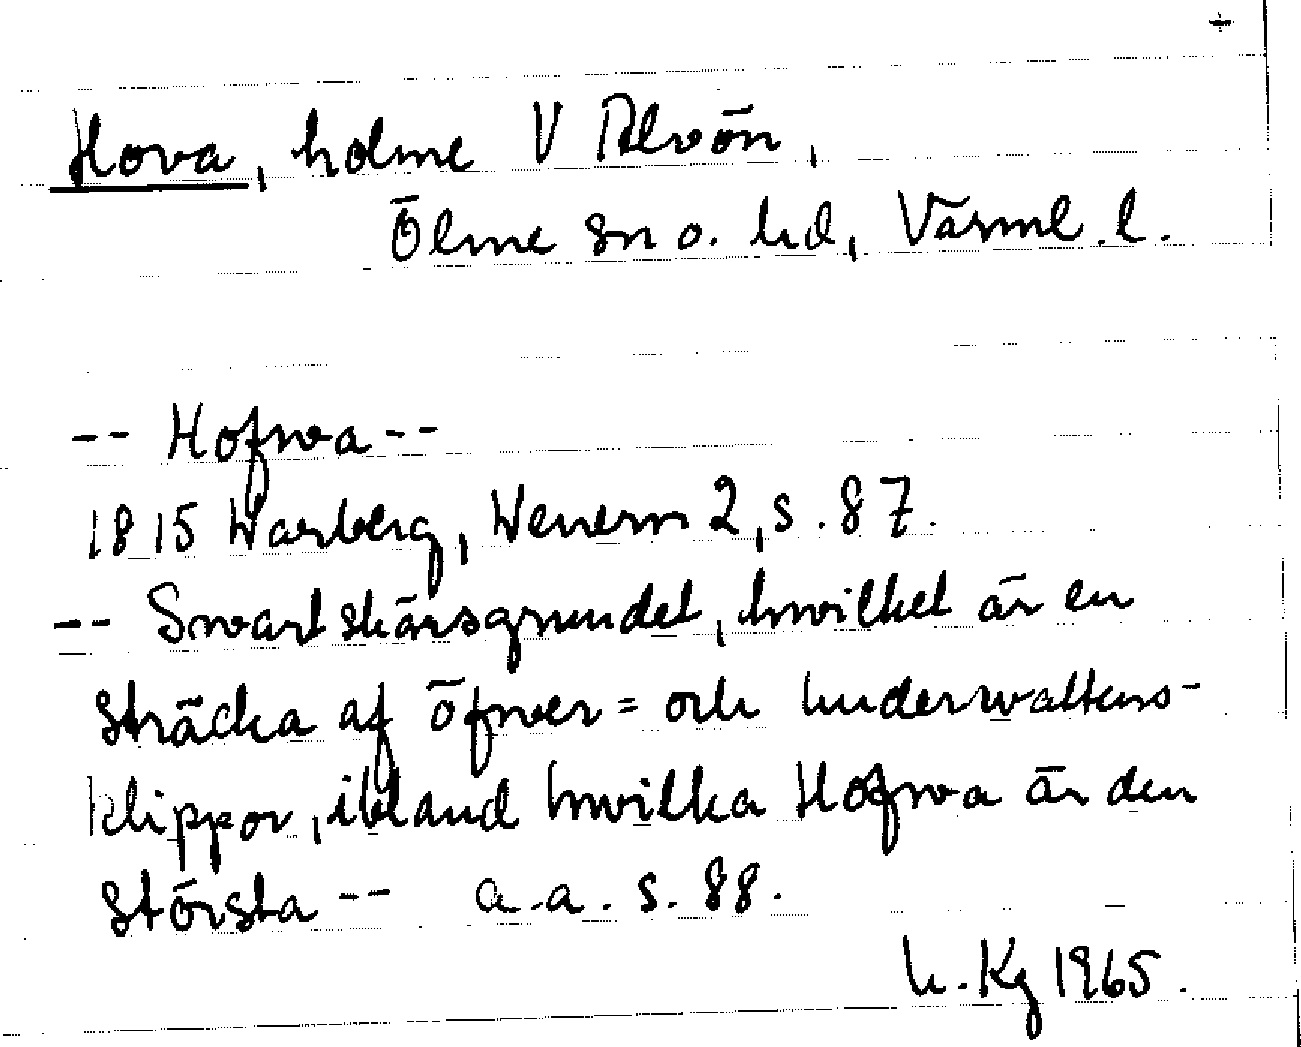 +
Hova, holme V Alvön,
Ölme sn o. hd, Värml. l.
-- Hofwa --
1815 Warberg, Wenern 2, s. 87.
-- Swartskärsgrundet, hwilket är en
sträcka af öfwer= och underwattens-
klippor, ibland hwilka Hofwa är den
största -- a.a. s. 88.
Kg 1965.